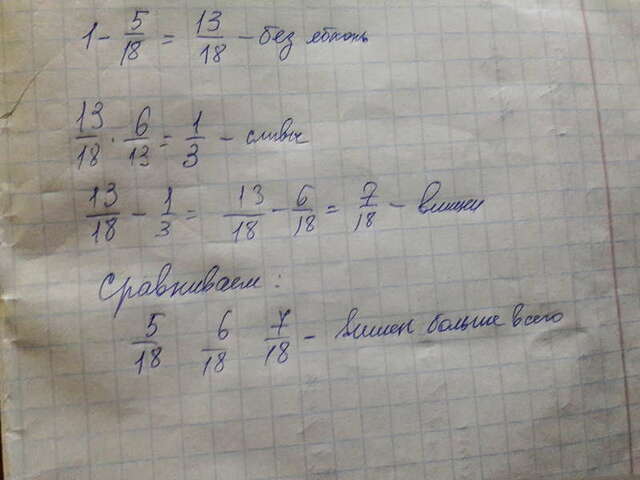 1 - 5/18 = 13/18 - без яблонь
13/18 · 6/13 = 1/3 - сливы
13/18 - 1/3 = 13/18 - 6/18 = 7/18 - вишни
Сравниваем:
5/18 6/18 7/18 - вишен больше всего